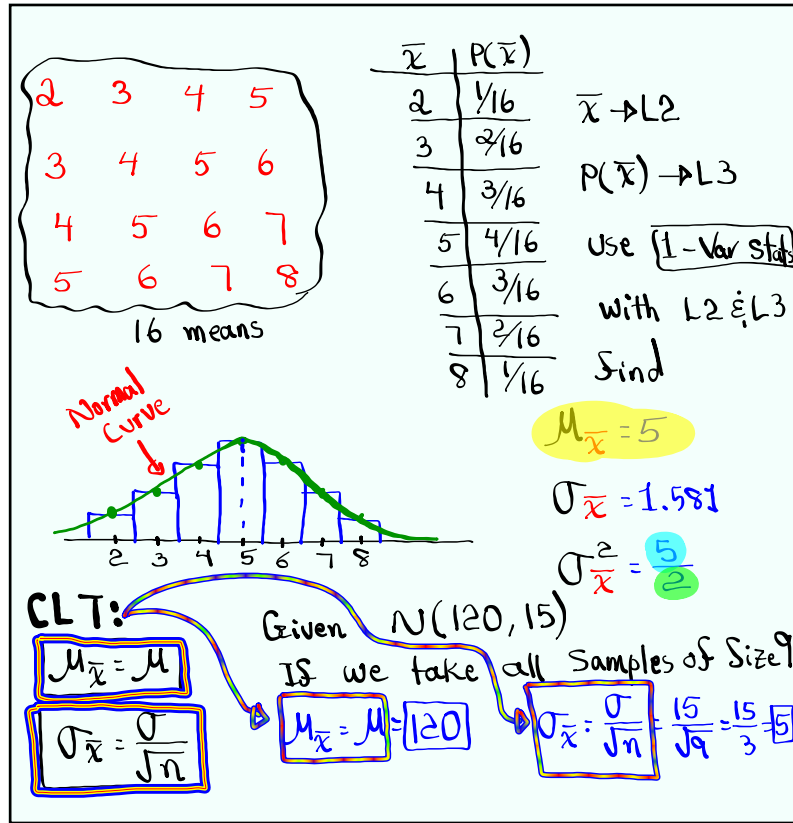 2 3 4 5
3 4 5 6
4 5 6 7
5 6 7 8
16 means
x̄ P(x̄)
2 1/16
3 2/16
4 3/16
5 4/16
6 3/16
7 2/16
8 1/16
x̄ → L2
P(x̄) → L3
use 1-Var Stats
with L2 & L3
find
μx̄ = 5
σx̄ = 1.581
σ²x̄ = 5/2
Normal
Curve
2 3 4 5 6 7 8
CLT:
μx̄ = μ
σx̄ = σ/√n
Given N(120, 15)
If we take all samples of size 9
μx̄ = μ = 120
σx̄ = σ/√n = 15/√9 = 15/3 = 5